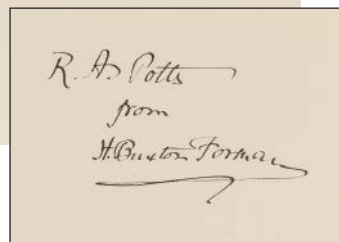 R. A. Potts
from
H. Buxton Forman